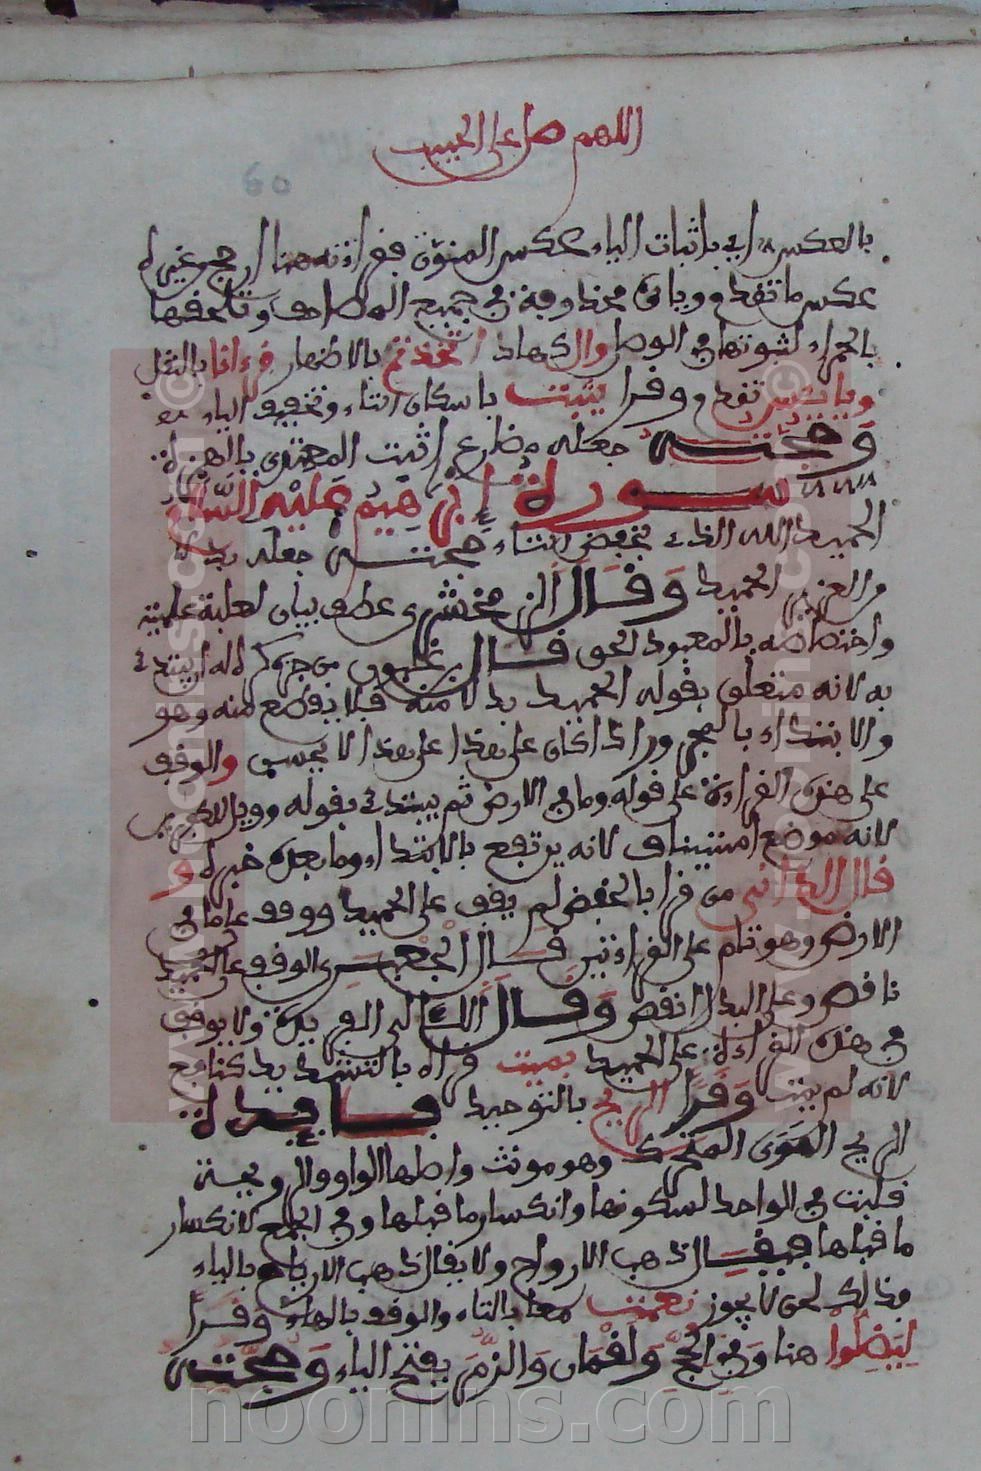 اللهم صل على الحبيب
60
بالعكس اي باثبات الياء عكس المنون فقراءته هنا ارجح وغيره
عكس ما تقدم وياؤه محذوفة في جميع المصاحف وتلحقها
بالجر لثبوتها في الوصل وال كهاد اتخذتم بالاظهار قرءانا بالنقل
ويايس تقدم وقرا يثبت باسكان الثاء وتخفيف الباء
وحجته جعله مضارع اثبت المعدى بالهمزة
سورة ابرهيم عليه السلام
الحميد الله الذي بخفض الهاء حجته جعله بدلا
من العزيز الحميد وقال الزمخشري عطف بيان لغلبة علميته
واختصاصه بالمعبود الحق قال ابن غلبون من جره لم له ان يبتدئ
به لانه متعلق بقوله الحميد بدلا منه فلا يقطع منه وهو
والابتداء بالعجور اذا كان على هذا على هذا لا يحسن والوقف
على هذه القراءة على قوله وما في الارض ثم يبتدئ بقوله وويل للكفرين
لانه موضع استيناف لانه يرتفع بالابتداء وما بعده خبر له و
قال الداني من قرا بالخفض لم يقف على الحميد ووقف على ما في
الارض وهو تام على القراءتين قال الجعبري الوقف على الحميد
ناقص وعلى البدل انقص وقال
في هذه القراءة على الحميد بميت قراه بالتشديد كنافع
لانه لم يمت وقرا الريح بالتوحيد فايدة
الريح الهوى المتحرك وهو مونث واصلها الواو والرويحة
قلبت في الواحد لسكونها وانكسار ما قبلها وفي الجمع لانكسار
ما قبلها فيقال ذهب الارواح ولا يقال ذهب الارياح بالياء
وذلك لحن لا يجوز نعمت معا بالتاء والوقف بالهاء وقرا
ليضلوا هنا وفي الحج ولقمان والزمر بفتح الياء وحجته
www.noonins.com ©
www.noonins.com ©
noonins.com